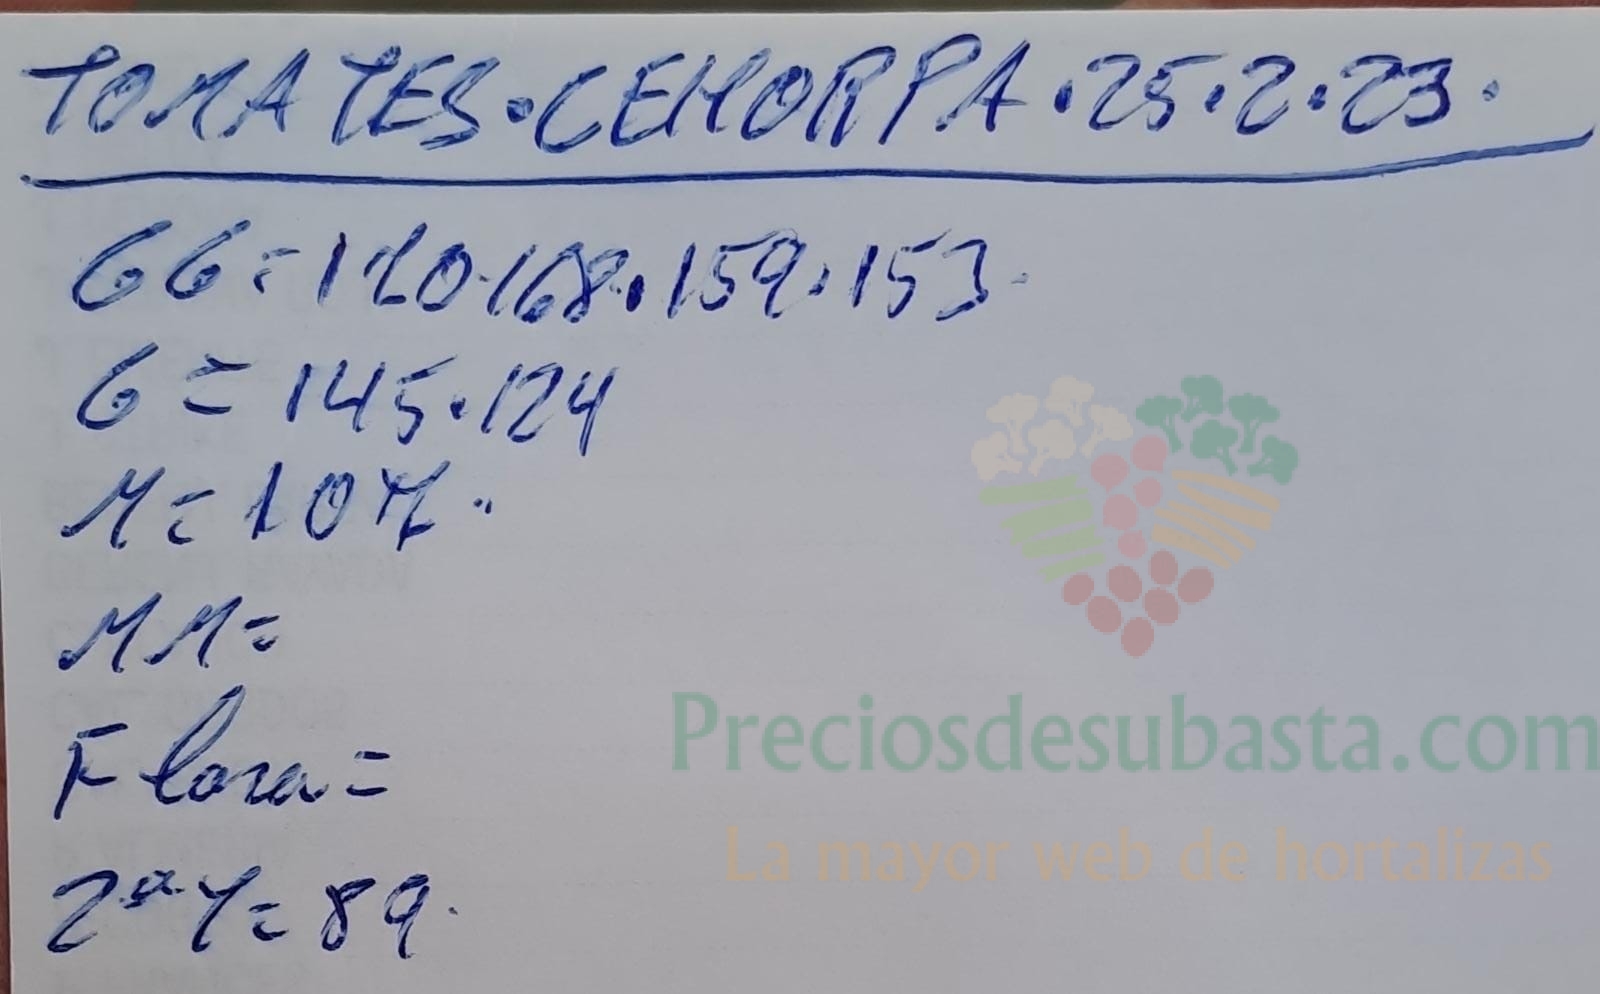 TOMATES · CEHORPA · 25 · 2 · 23 ·
GG = 120 · 168 · 159 · 153 ·
G = 145 · 124
M = 107 ·
MM =
Flora =
2ª Y = 89 ·
Preciosdesubasta.com
La mayor web de hortalizas